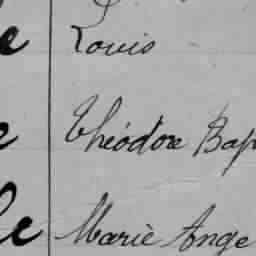 Louis
Théodore Bap
Marie Ange